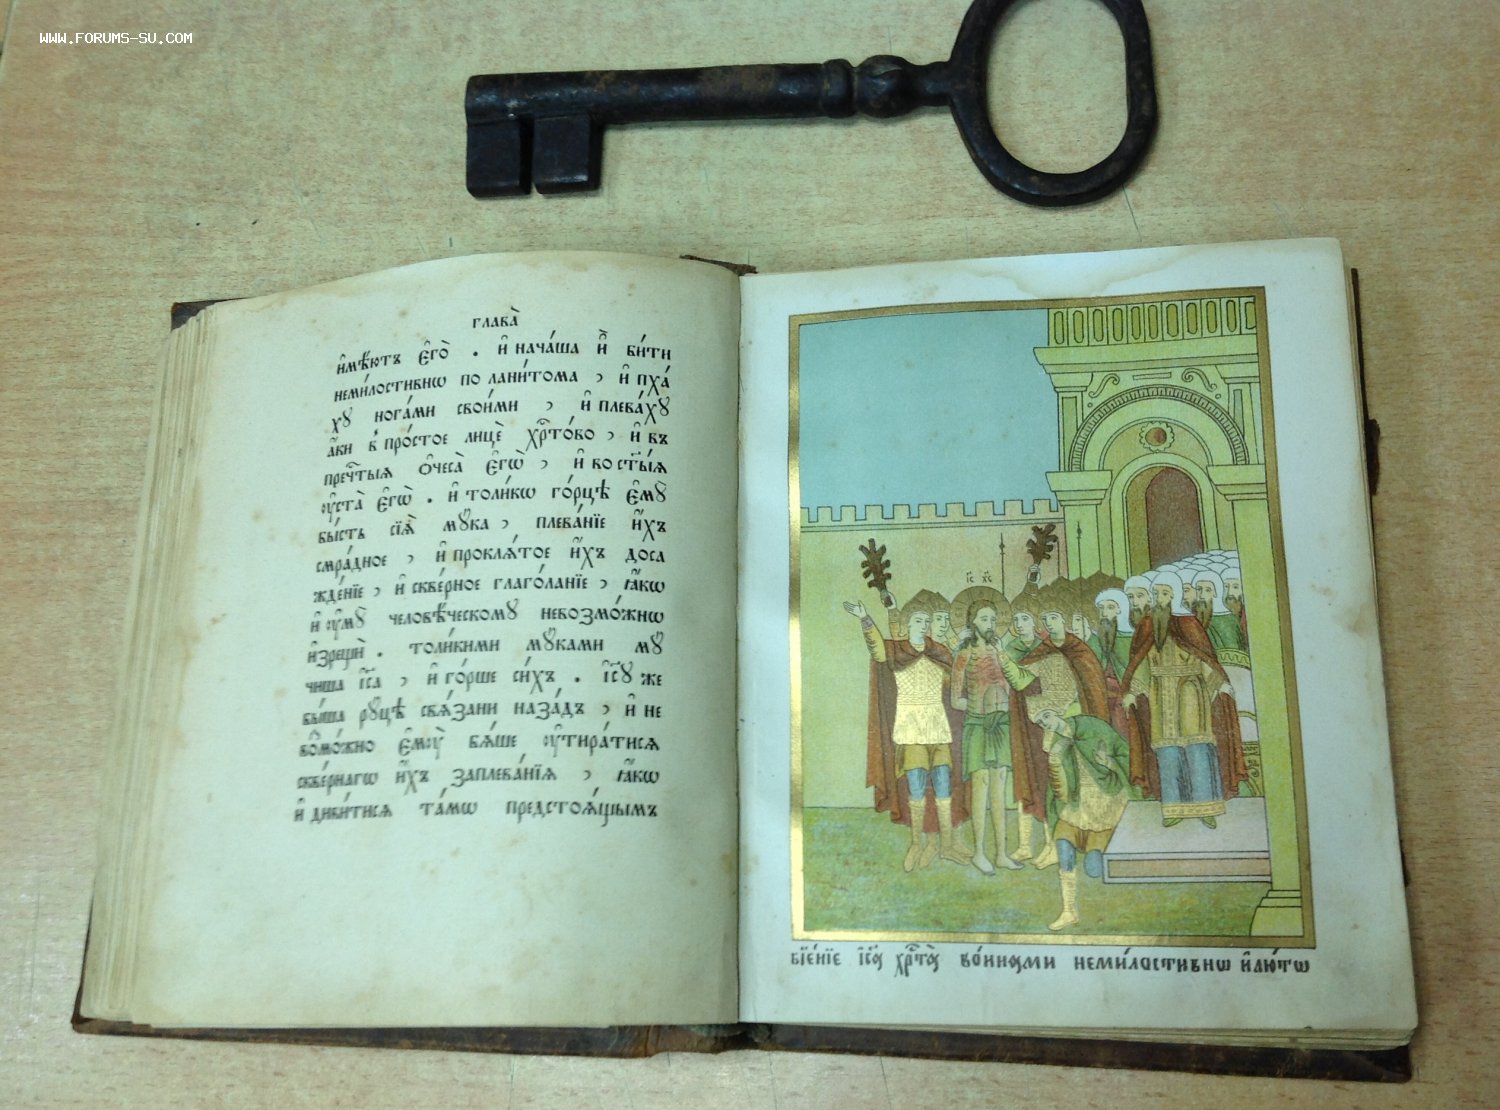 WWW.FORUMS-SU.COM
глава̀
и҆мѣ́ютъ є҆го̀ . и҆ нача́ша и҆̀ би́ти
неми́лостивнѡ по лани́тома , и҆ пха́
хꙋ нога́ми свои́ми , и҆ плева́хꙋ
а҆́ки в про́стое лицѐ хрⷭ҇то́во , и҆ въ
пречⷭ҇тыѧ ѻ҆чеса̀ є҆гѡ̀ , и҆ во ст҃ы́ѧ
ᲂу҆ста̀ є҆гѡ̀ . и҆ толи́кѡ го́рцѣ є҆мꙋ̀
бы́сть сїѧ̀ мꙋ́ка , плева́нїе и҆́хъ
смра́дное , и҆ проклѧ́тое и҆́хъ доса
жде́нїе , и҆ скве́рное глаго́ланїе , ꙗ҆́кѡ
и҆ ᲂу҆мꙋ̀ человѣ́ческомꙋ невозмо́жнѡ
и҆зрещѝ . толи́кими мꙋ́ками мꙋ
чиша і҆с҃а , и҆ го́рше си́хъ . і҆с҃ꙋ же
бы́ша рꙋ́цѣ свѧ́зани наза́дъ , и҆ не
во҆мо́жно є҆мᲂу̀ бѧ́ше ᲂу҆тира́тисѧ
скве́рнагѡ и҆́хъ заплева́нїѧ , ꙗ҆́кѡ
и҆ диви́тисѧ та́мѡ предстоѧ́щымъ
і҃с х҃с
бїе́нїе і҆с҃ово хрⷭ҇то́во во́инᲂми неми́лостивнѡ и҆ лю́тѡ